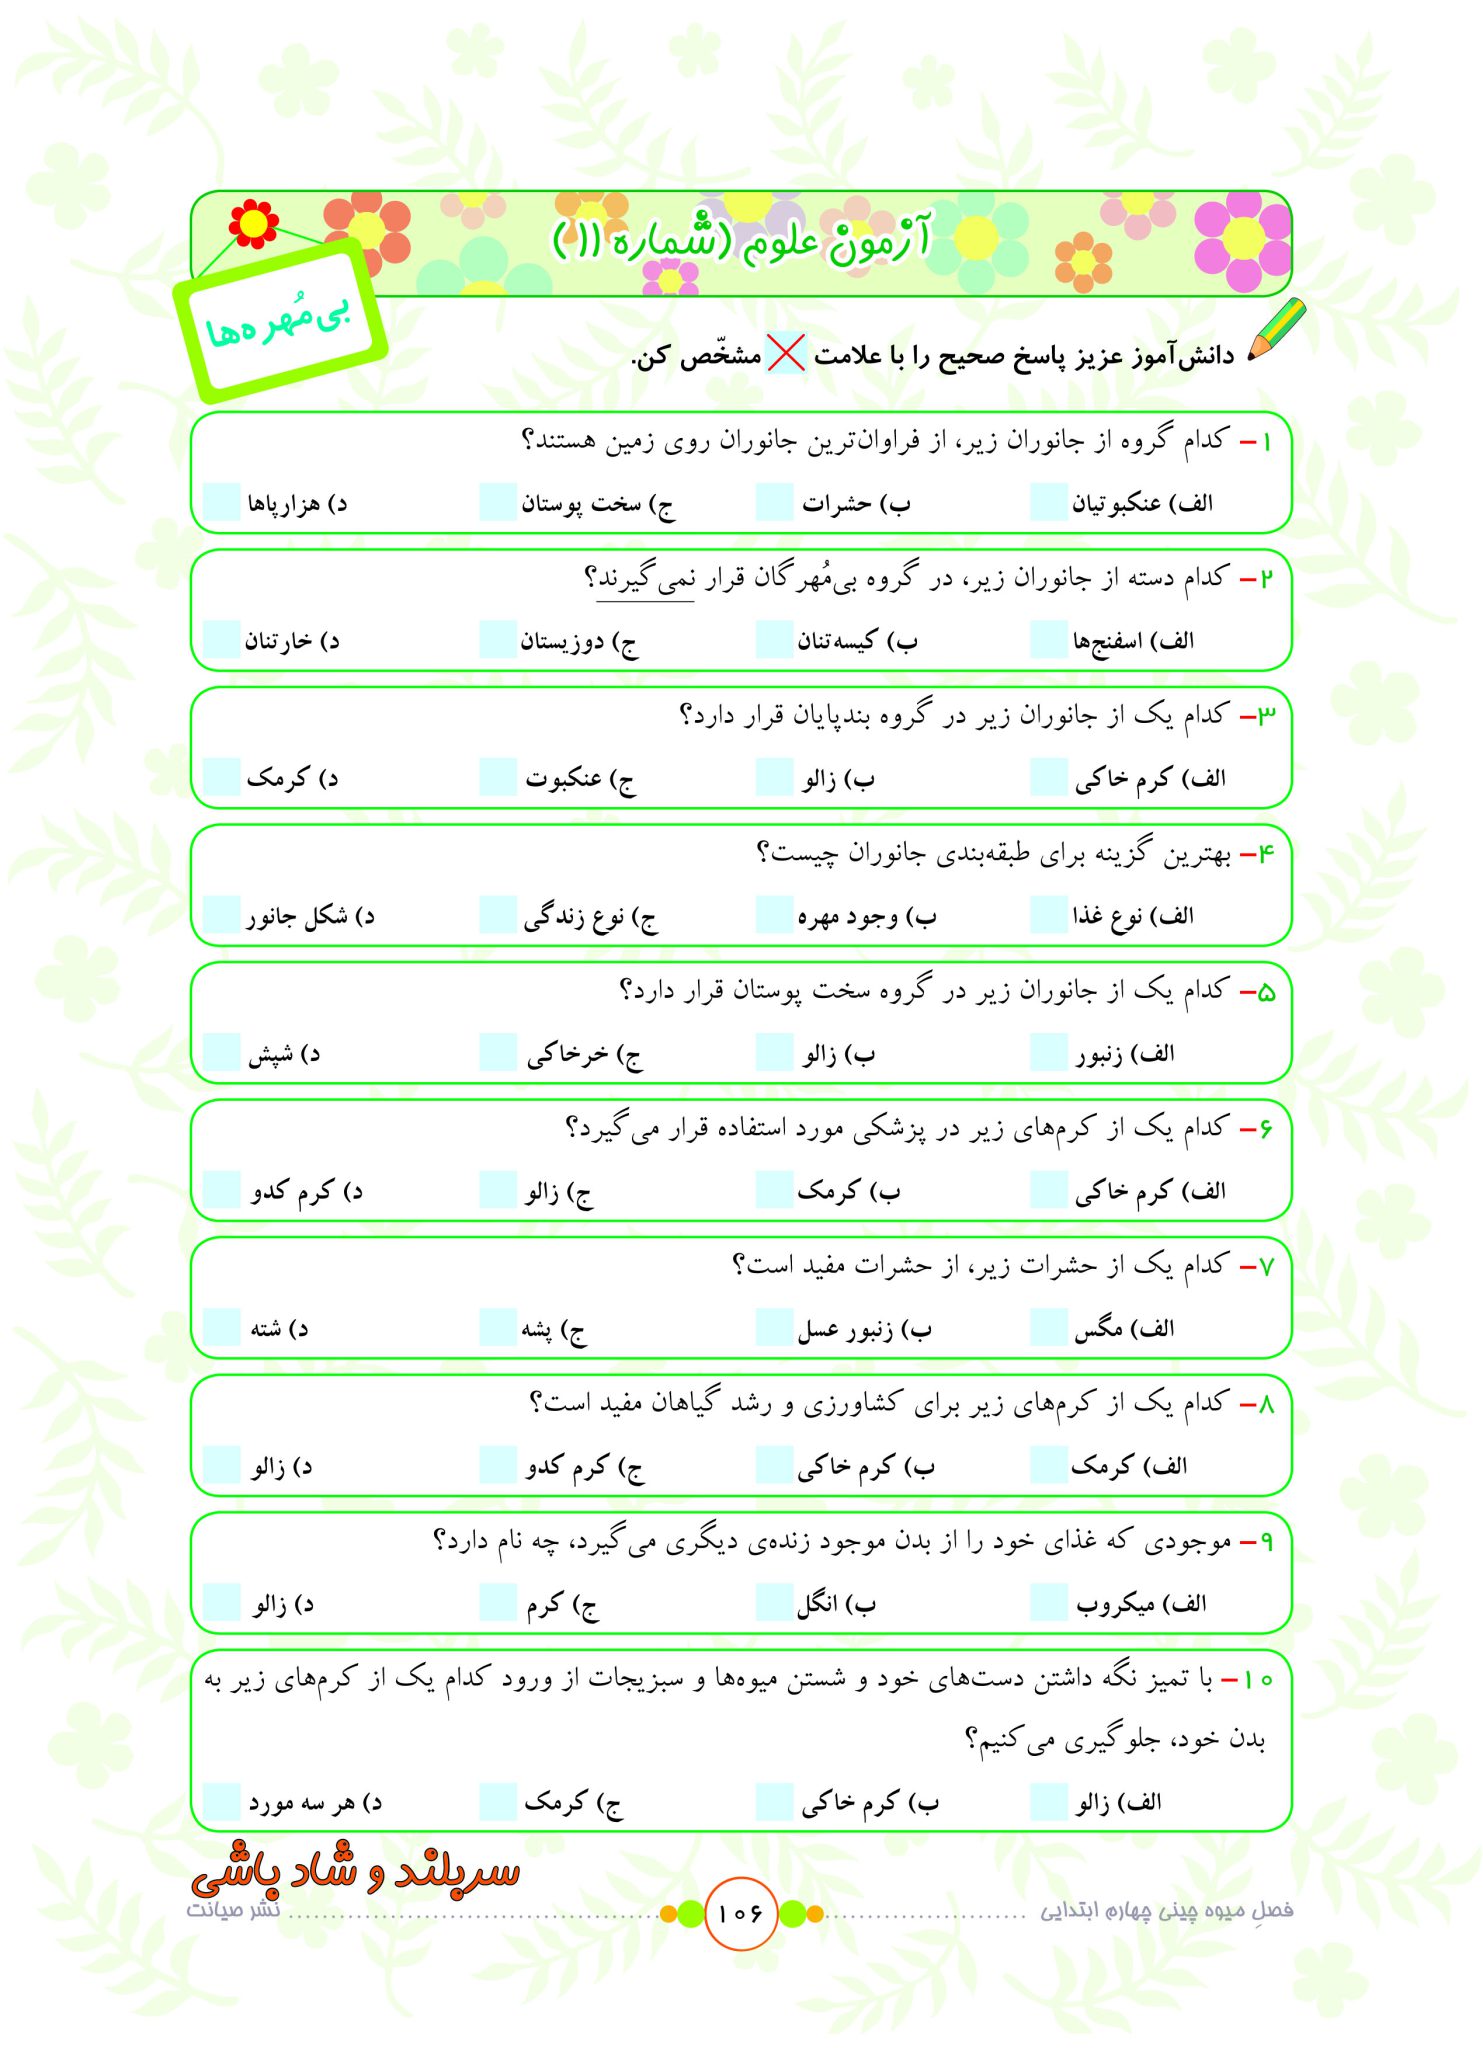 آزمون علوم (شماره ۱۱)
بی‌مُهره‌ها
دانش‌آموز عزیز پاسخ صحیح را با علامت مشخّص کن.
۱- کدام گروه از جانوران زیر، از فراوان‌ترین جانوران روی زمین هستند؟
الف) عنکبوتیان ب) حشرات ج) سخت پوستان د) هزارپاها
۲- کدام دسته از جانوران زیر، در گروه بی‌مُهرگان قرار نمی‌گیرند؟
الف) اسفنج‌ها ب) کیسه‌تنان ج) دوزیستان د) خارتنان
۳- کدام یک از جانوران زیر در گروه بندپایان قرار دارد؟
الف) کرم خاکی ب) زالو ج) عنکبوت د) کرمک
۴- بهترین گزینه برای طبقه‌بندی جانوران چیست؟
الف) نوع غذا ب) وجود مهره ج) نوع زندگی د) شکل جانور
۵- کدام یک از جانوران زیر در گروه سخت پوستان قرار دارد؟
الف) زنبور ب) زالو ج) خرخاکی د) شپش
۶- کدام یک از کرم‌های زیر در پزشکی مورد استفاده قرار می‌گیرد؟
الف) کرم خاکی ب) کرمک ج) زالو د) کرم کدو
۷- کدام یک از حشرات زیر، از حشرات مفید است؟
الف) مگس ب) زنبور عسل ج) پشه د) شته
۸- کدام یک از کرم‌های زیر برای کشاورزی و رشد گیاهان مفید است؟
الف) کرمک ب) کرم خاکی ج) کرم کدو د) زالو
۹- موجودی که غذای خود را از بدن موجود زنده‌ی دیگری می‌گیرد، چه نام دارد؟
الف) میکروب ب) انگل ج) کرم د) زالو
۱۰- با تمیز نگه داشتن دست‌های خود و شستن میوه‌ها و سبزیجات از ورود کدام یک از کرم‌های زیر به
بدن خود، جلوگیری می‌کنیم؟
الف) زالو ب) کرم خاکی ج) کرمک د) هر سه مورد
سربلند و شاد باشی
فصلِ میوه چینی چهارم ابتدایی ۱۰۶ نشر صیانت